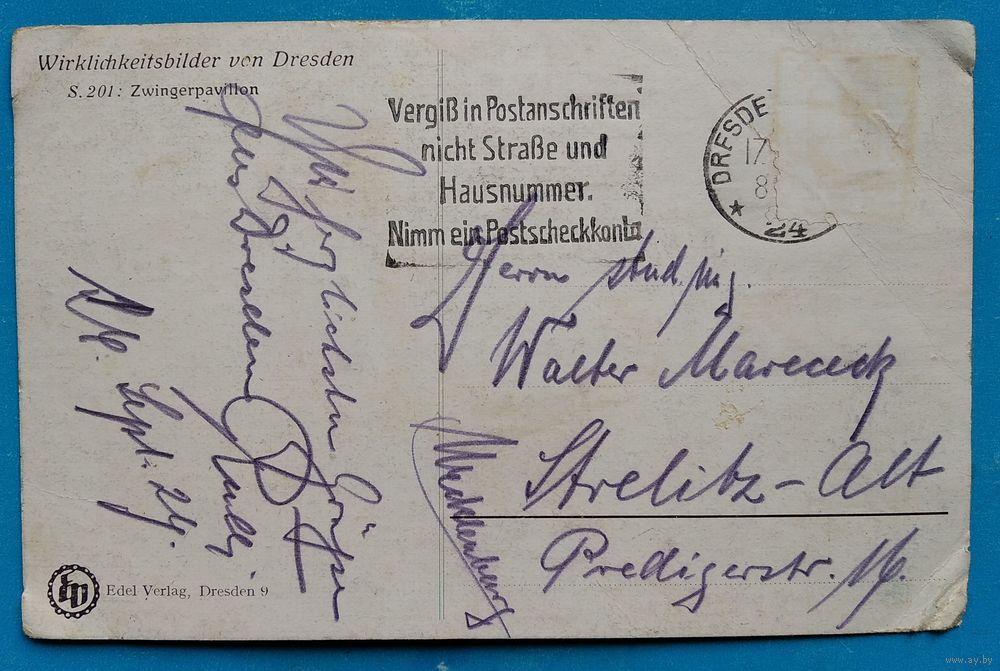 Wirklichkeitsbilder von Dresden
S. 201: Zwingerpavillon
Vergiß in Postanschriften
nicht Straße und
Hausnummer.
Nimm ein Postscheckkonto
DRESDE
17
8
24
Die herzlichsten Grüße
aus Dresden
Sept. 29.
Herrn stud. ing.
Walter Marececk
Strelitz-Alt
Predigerstr. 16.
Mecklenburg
Edel Verlag, Dresden 9
www.ay.by